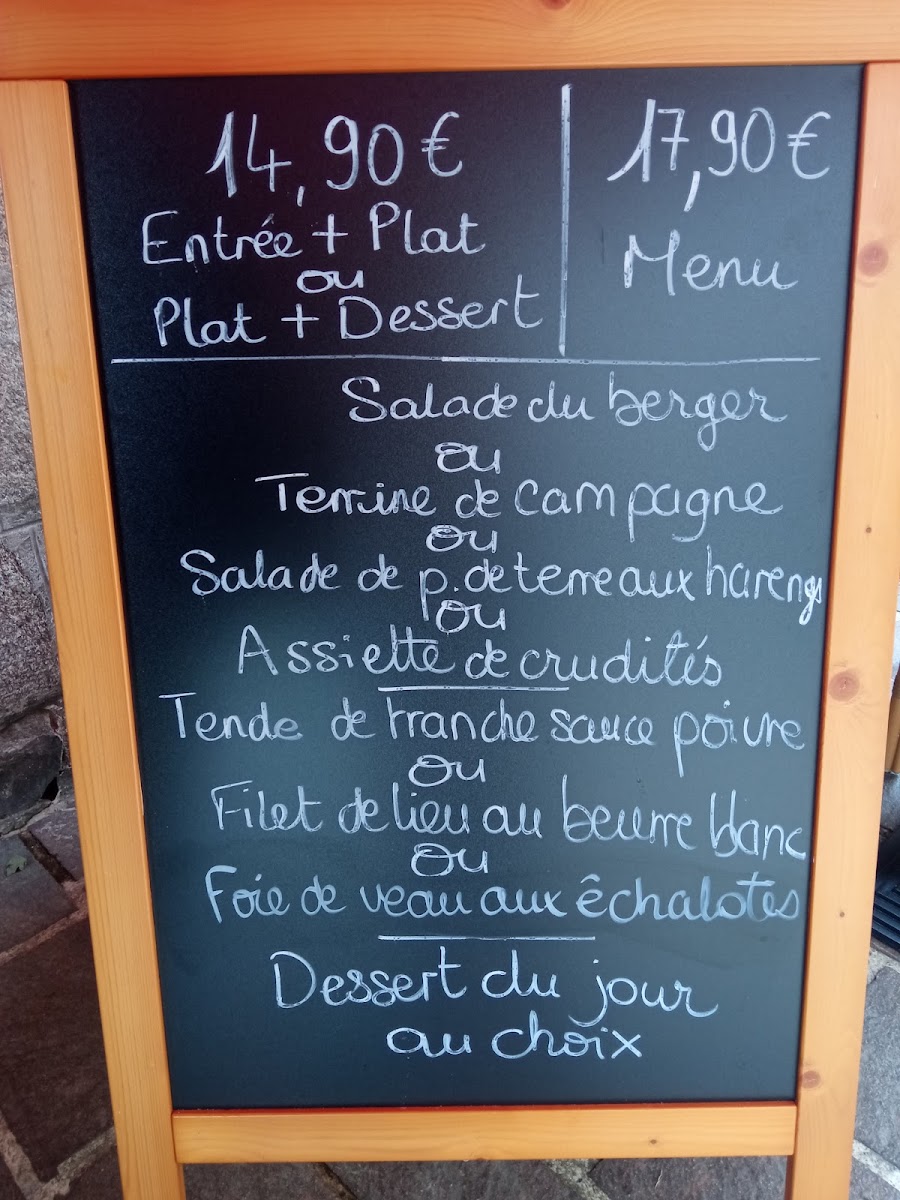 14,90 €
Entrée + Plat
ou
Plat + Dessert
17,90 €
Menu
Salade du berger
ou
Terrine de campagne
ou
Salade de p. de terre aux harengs
ou
Assiette de crudités
Tende de tranche sauce poivre
ou
Filet de lieu au beurre blanc
ou
Foie de veau aux êchalotes
Dessert du jour
au choix